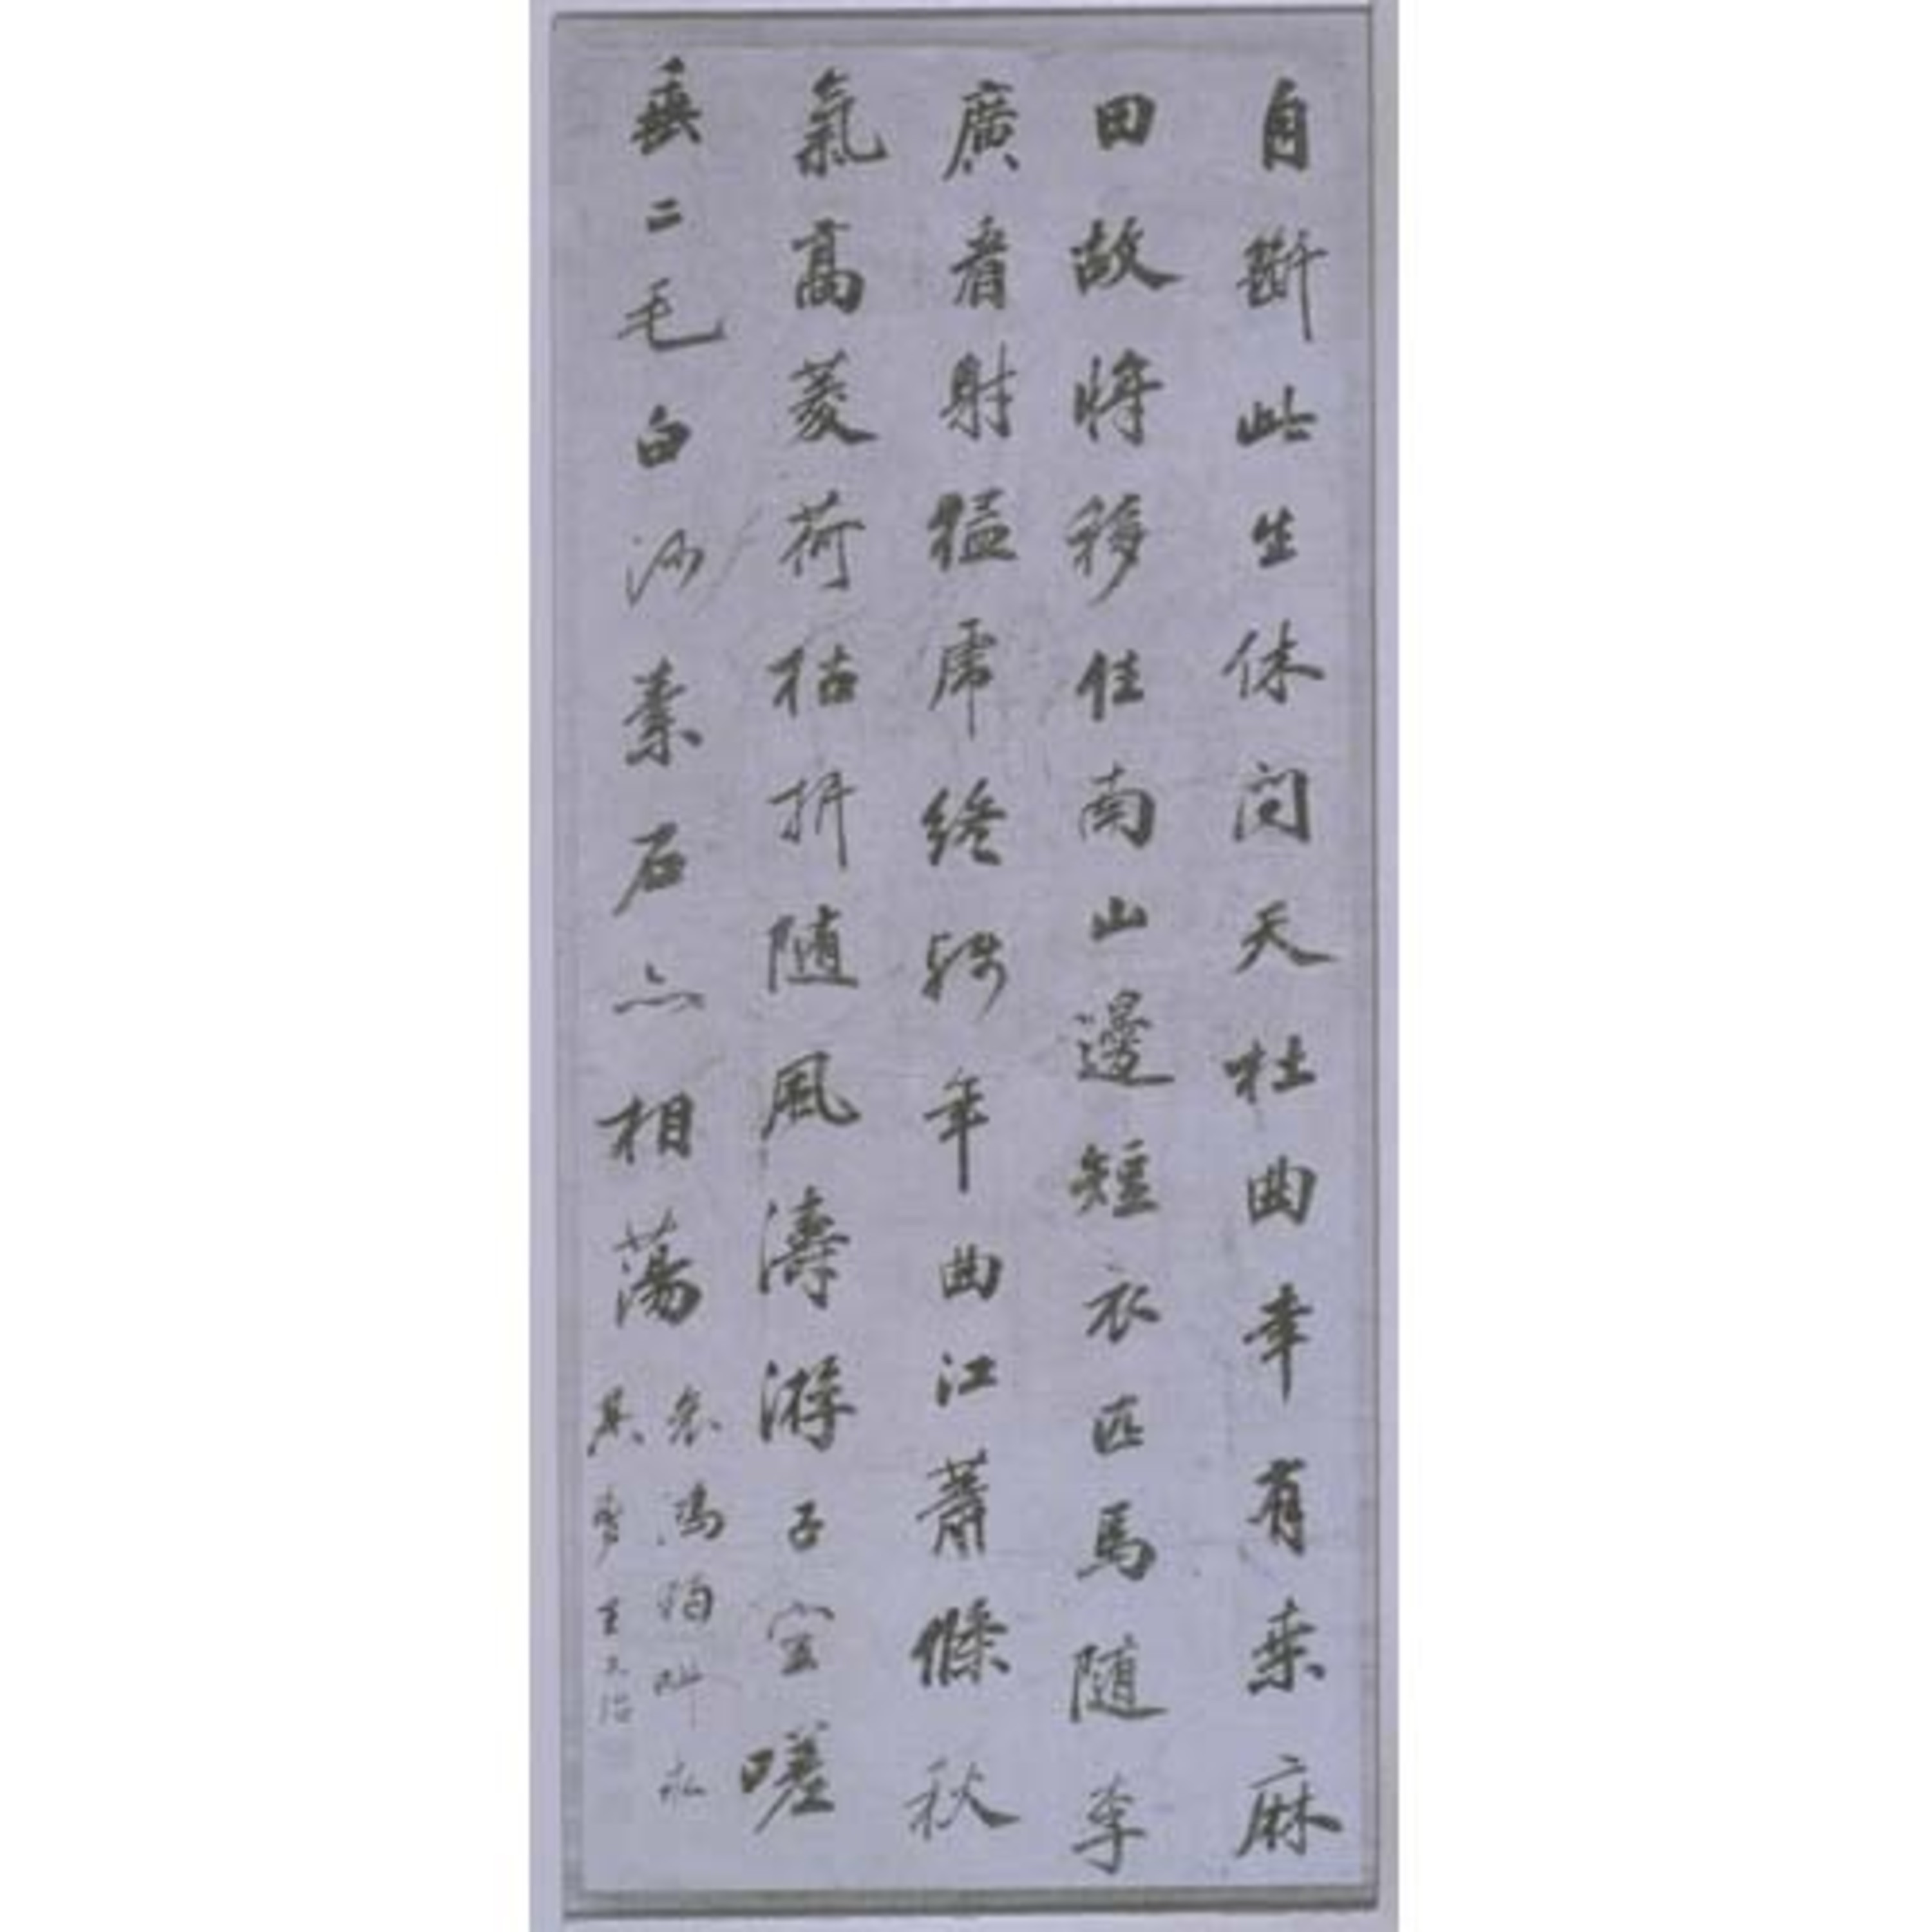 自斷此生休問天杜曲幸有桒麻
田故將移住南山邊短衣匹馬隨李
廣看射猛虎終殘年曲江蕭條秋
氣高菱荷枯折隨風濤游子空嗟
垂二毛白沙素石亦相蕩
王文治